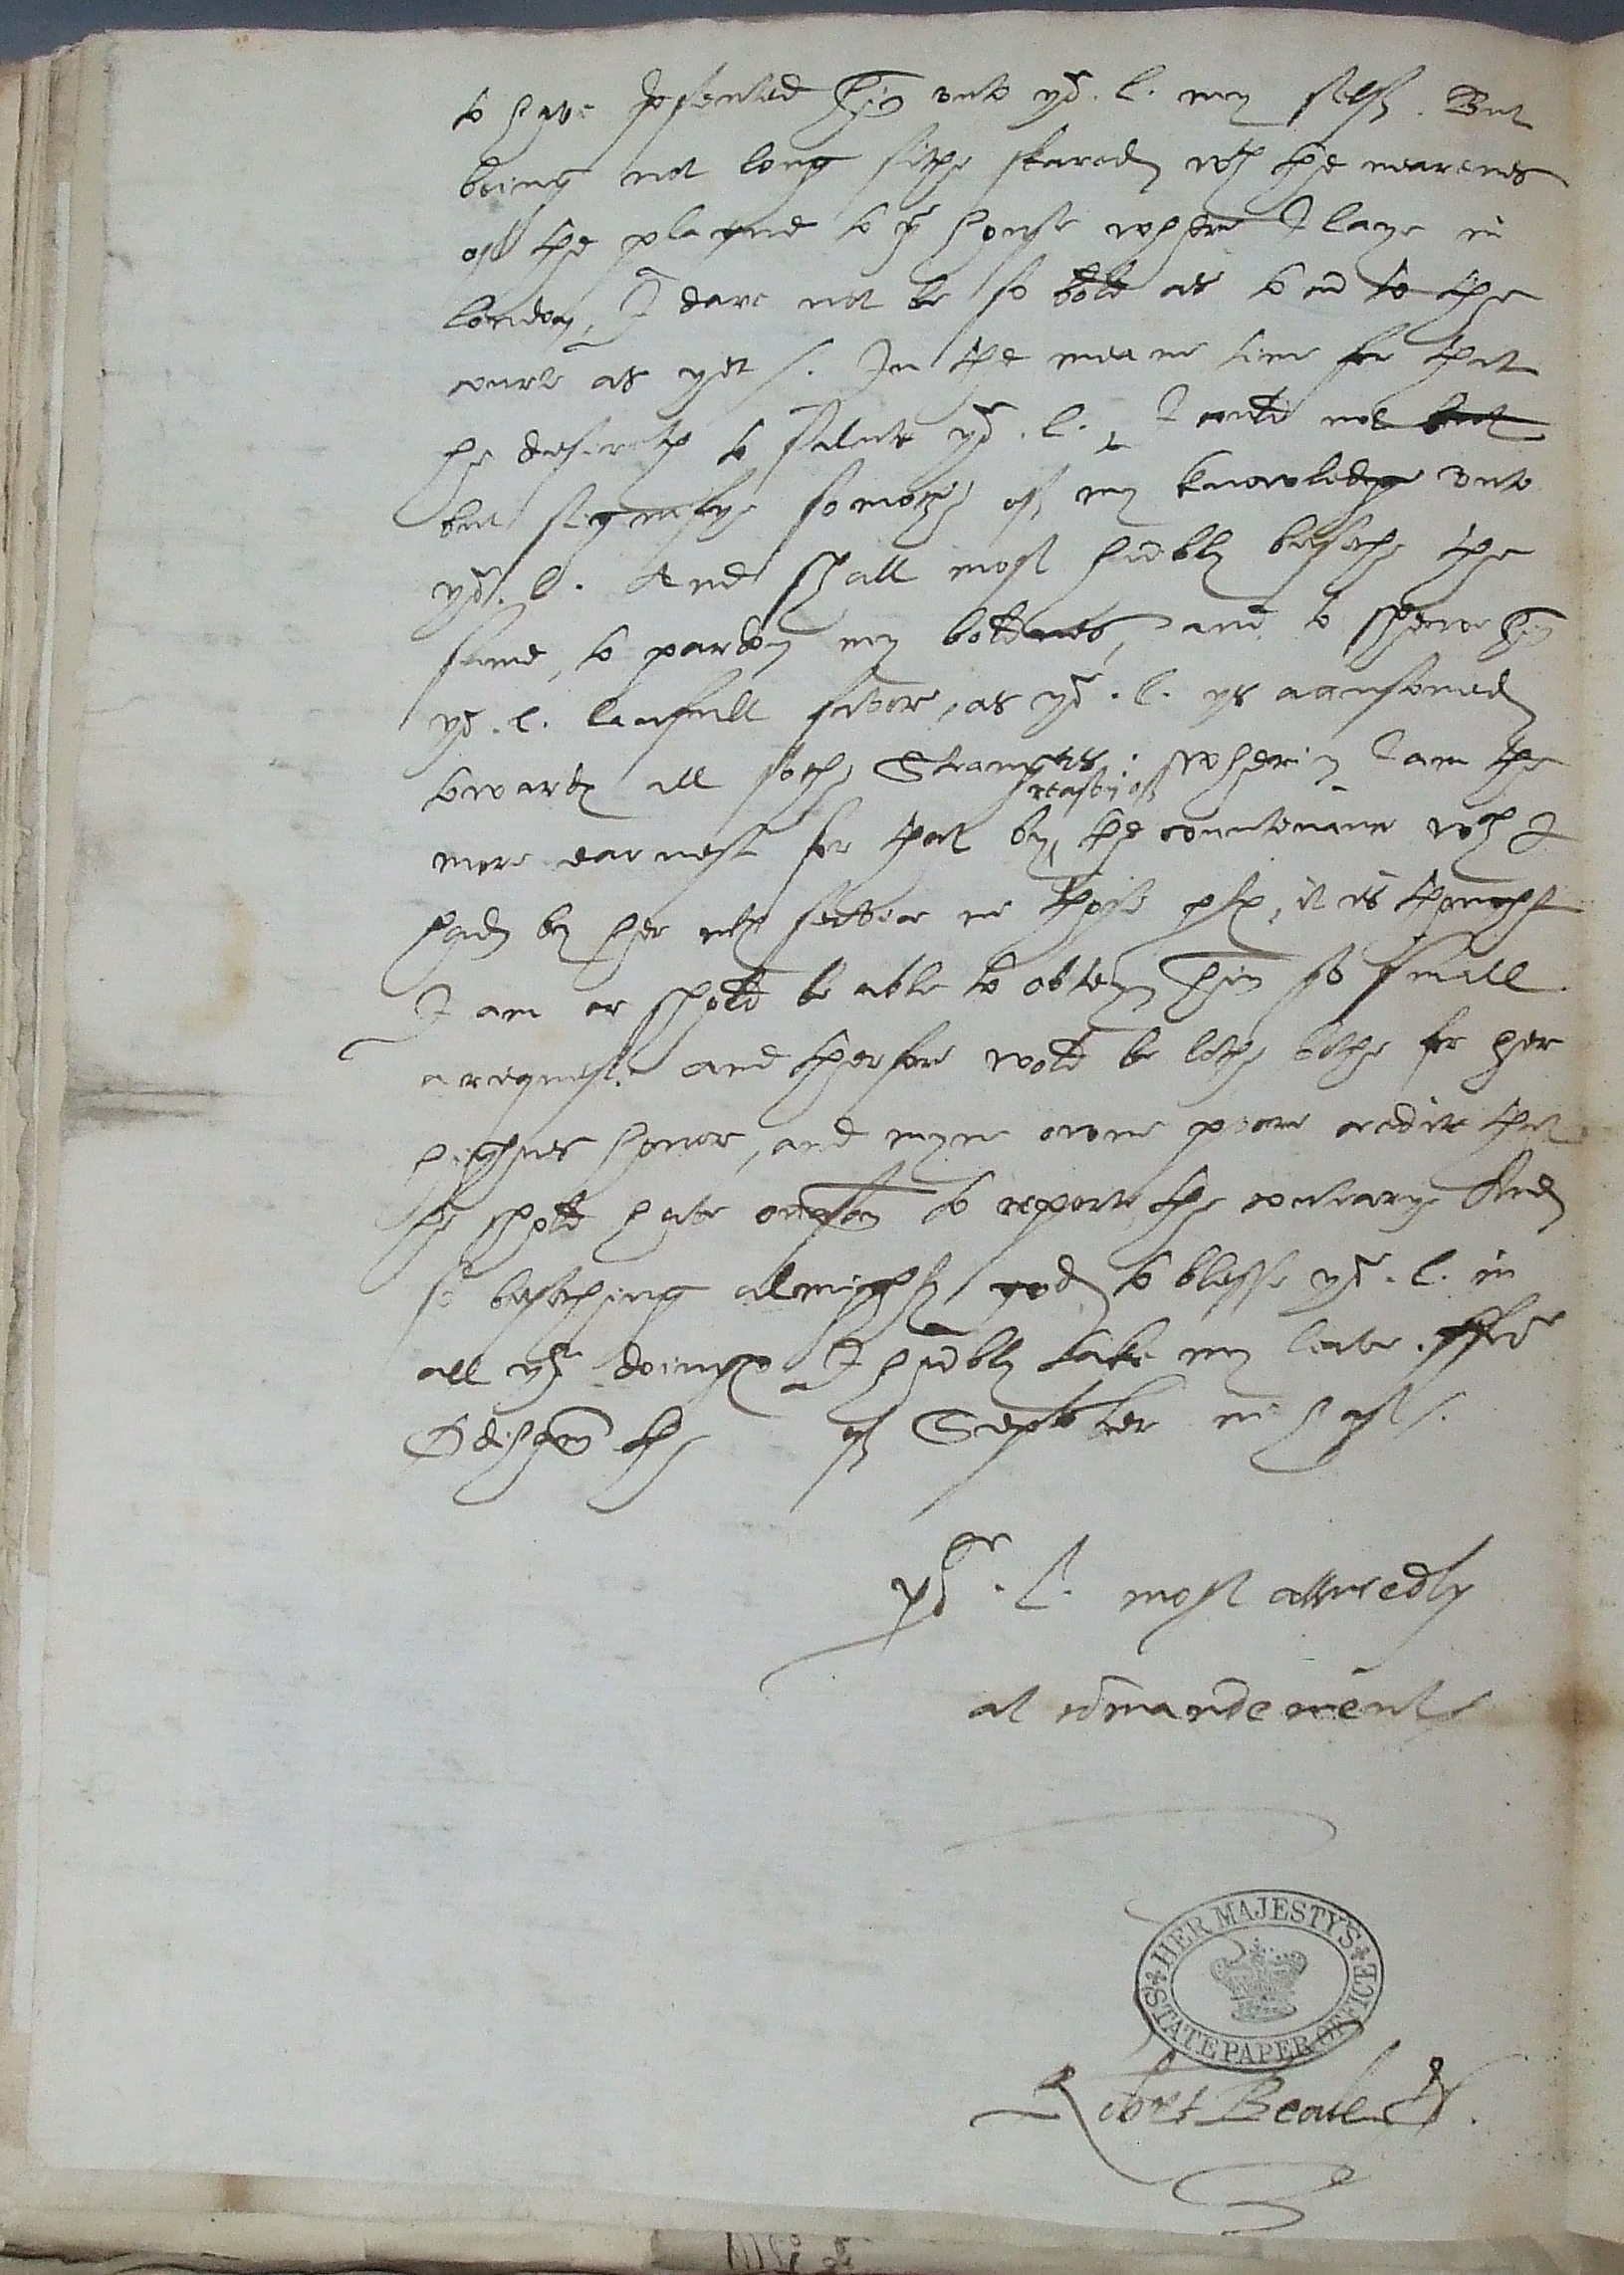 to have p̱sented him unto yor. l. my self. But
being not long sithe skared wth the nearenes
of the plague to ye house where I laye in
london, I dare not be so bold as to cū to the
courte as yet /. In the meane time for that
he desireth to salute yor. l. I could not but
but signifye somoche of my knowledge unto
yor. l. And shall most hūbly beseche the
same, to pardon my boldnes, and to shewe him
yor. l. laufull favor, as yor. l. ys accustomed
towards all soche Strangers. Wherin I am the
reason of
more earnest for that by the countenance wch I
had by her mats service in those pts, it is thought
I am or shold be able to obteyn him so small
a request. and therfore wold be lothe bothe for her
highnes honor, and myne owne poore credite that
he shold have occasion to reporte the contrarye And
so beseching almighty god to blesse yor. l. in
all yor doings I hūbly take my leave. ffrō
the of September in hast /.
yor. l. most assuredly
at cōmandement
HER MAJESTY'S STATE PAPER OFFICE
Robert Beale